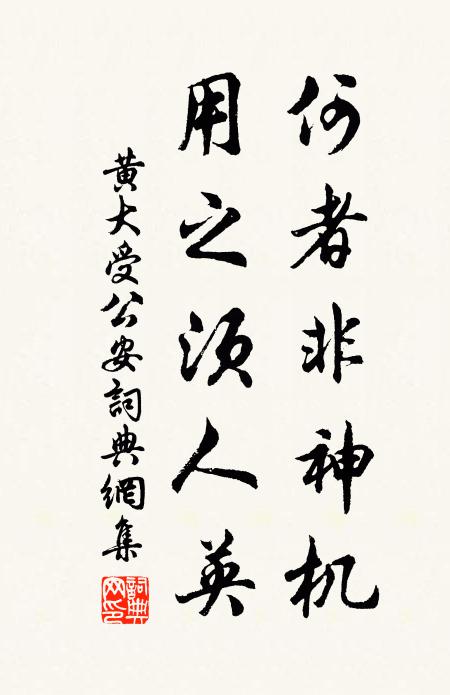 何者非神机
用之须人英
黄大受公安詞典網集
詞典網印